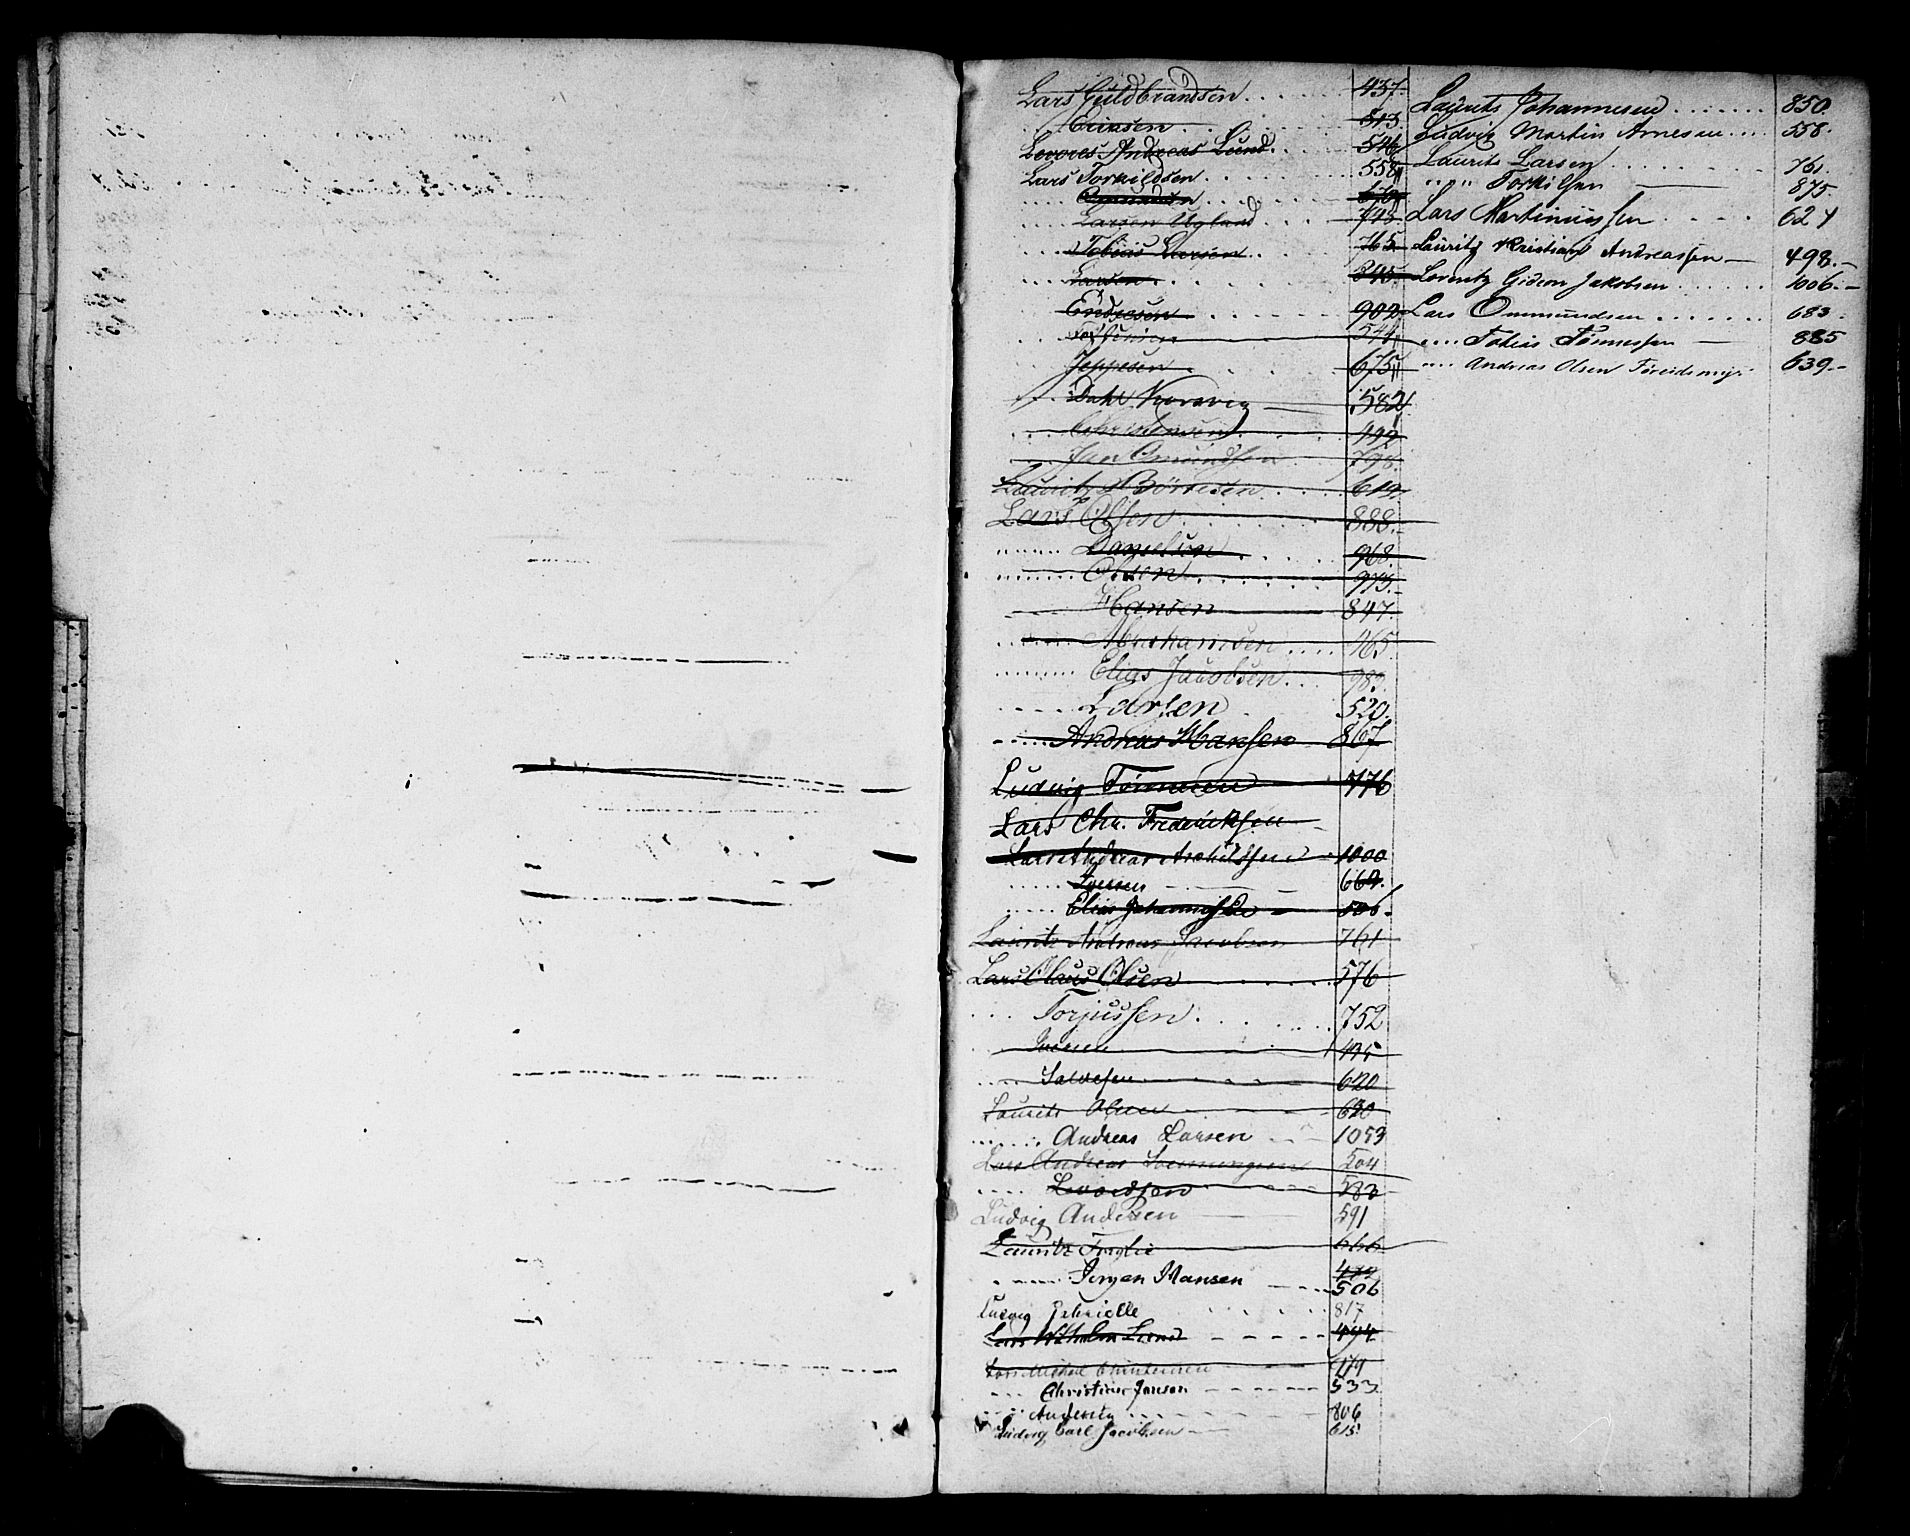 Lars Guldbrandsen . . . . 437.
.... Eriksen . . . . 513.
Levores Andreas Lund. . . 546
Lars Torkildsen . . . . . . 558
..... Omundsen . . . . 670
.... Larsen Ugland . . . 748
.... Tobias Larsen . . 765
.... Larsen . . . . . 845
Endresen . . . . . 902
544
Jeppesen . . . . 675
.... Dahl Korsvig — 582
.... Christensen . . . . 492
.... Jan Omundsen . . . 798
Lauritz Börresen . . . . 619
Lars Olsen . . . . . . 888.
........ Danielsen . . . . 968.
........ Olsen . . . . . . 975.
Hansen 847
........ Abrahamsen . . . . 465
........ Elias Jacobsen . . . 982
..... Larsen . 520.
...... Andreas Hansen — 867
Ludvig Tönnesen 776
Lars Chr. Frederiksen
Lars Andreas 1000
..... Iversen — 662.
...... Elias Johannessen — 506.
Lauritz Andreas Jacobsen 761
Lars Claus Olsen . . . . . 576
.... Torjussen . . . . . . 752
.... Iversen 435
..... Salvesen 620
Laurits Olsen 620
....... Andreas Larsen 1053
Lars Andreas 504
..... 583
Ludvig Andersen 591
Lauritz 666
....... Jörgen Hansen 472
506
Ludvig Gabrielle . . . . 817
Lars Wilhelm Lund 494
Lars Michal Christensen 479
.... Christian Jansen 533
.... 806
Ludvig Carl Jacobsen 615
Laurits Johannesen . . . . . . 850
Ludvig Martin Arnesen .... 558.
Laurits Larsen . . . . . . . 761.
" " Torkilsen — 875.
Lars Martinussen . . . . 624
Lauritz Kristian Andreassen — 498.—
Lorentz Gideon Jakobsen . . . . . . 1006.—
Lars Ommundsen . . . . . . . 683.
.... Tobias Tönnessen — 885
.... Andreas Olsen 639.—